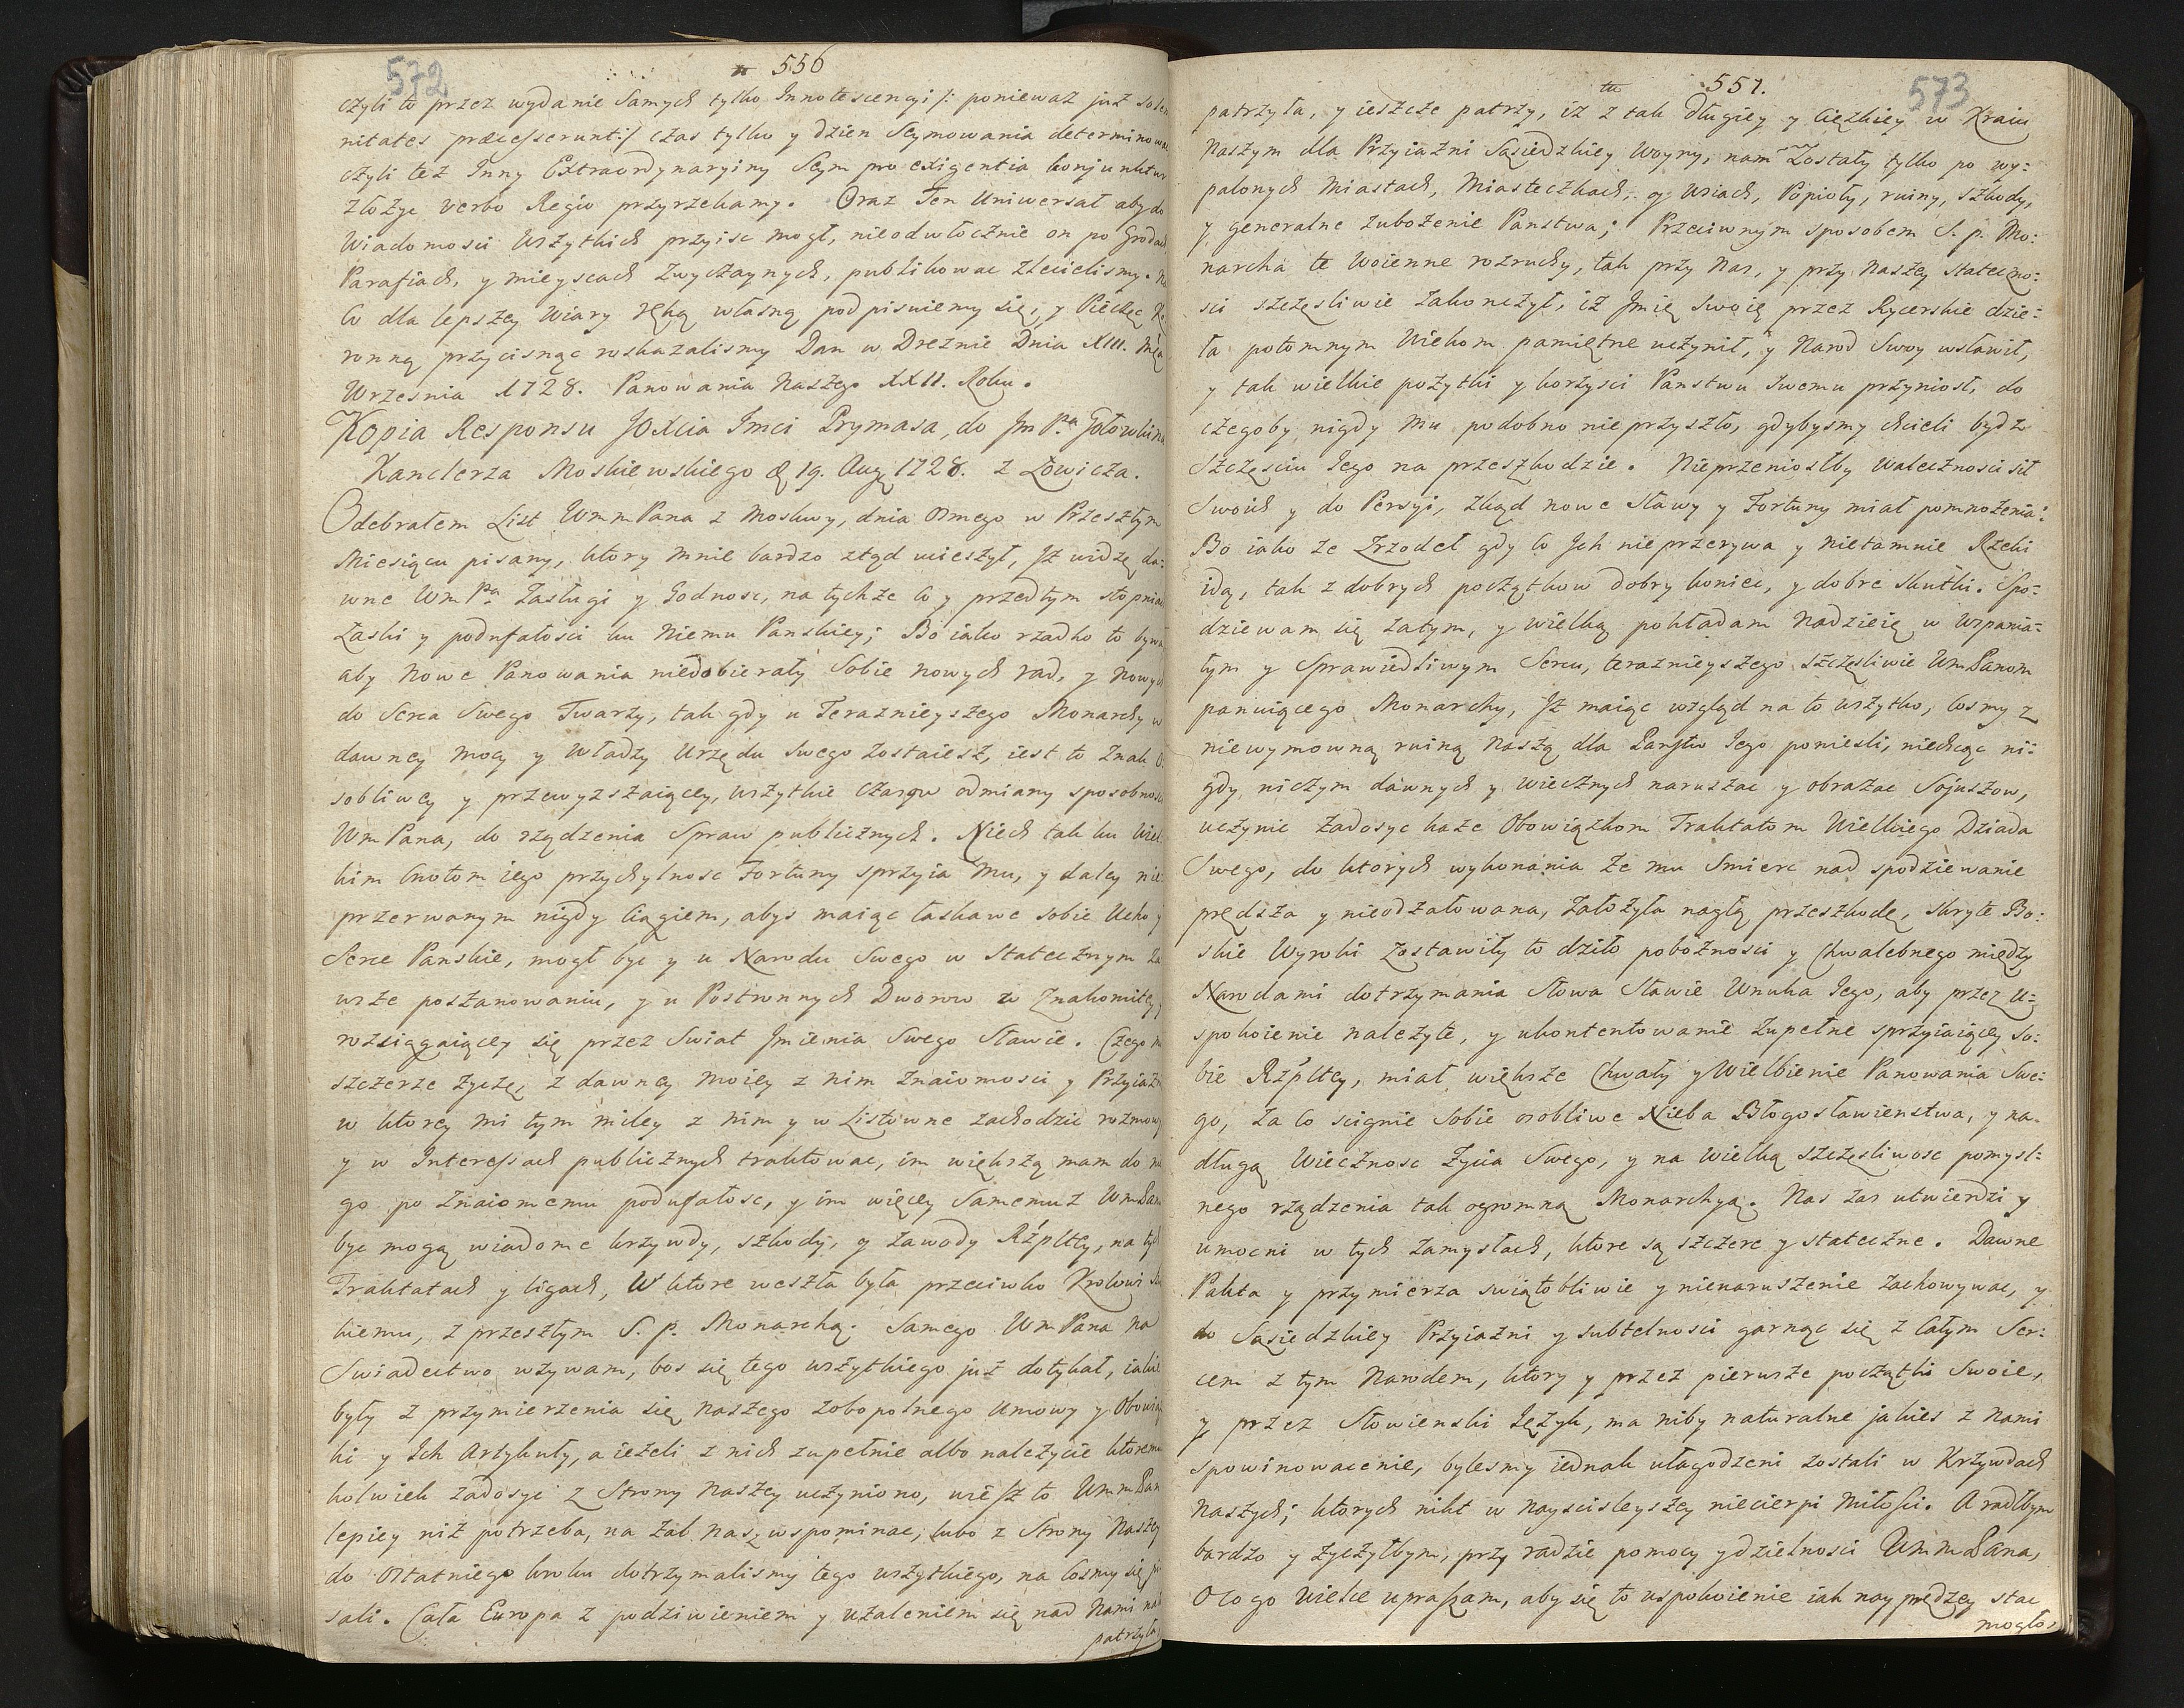 572
556
czyli to przez wydanie Samych tylko Innotescencyi /: poniewaz juz solen
nitates præcesserunt :/ czas tylko y dzien Seymowania determinowac
czyli tez Inny Extraordynaryiny Seym pro exigentia konjunktur
złozyc verbo Regio przyrzekamy. Oraz Ten Uniwersał aby do
Wiadomosci Wszytkich przyisc mogł, nieodwłocznie on po Grodach
Parafiach, y mieyscach zwyczaynych, publikowac zlecielismy. Na
Co dla lepszey Wiary ręką własną podpisuiemy się, y Pieczęc Ko
ronną przycisnąc roskazalismy Dan w Dreznie Dnia XIII. Mca
Wrzesnia 1728. Panowania Naszego XXII. Roku.
Kopia Responsu JOXcia Imci Prymasa, do Jm Pna Gołowkina
Kanclerza Moskiewskiego d 19. Aug 1728. z Łowicza.
Odebrałem List WmmPana z Moskwy, dnia osmego w Przeszłym
Miesiącu pisany, ktory mnie bardzo ztąd ucieszył, Jz widzę da:
wne WmPa Zasługi y Godnosc, na tychze Co y przedtym stopniach
Łaski y podufałosci ku Niemu Panskiey; Bo iako rzadko to bywa
aby Nowe Panowania niedobierały Sobie nowych rad, y nowych
do Serca Swego Twarzy, tak gdy u Teraznieyszego Monarchy w
dawney mocy y władzy Urzędu Swego zostaiesz, iest to Znak O
sobliwey y przewyzszaiącey, wszytkie Czasow odmiany sposobnosci
WmPana, do rządzenia Spraw publicznych. Niech tak ku Wiel
kim Cnotom iego przychylnosc Fortuny sprzyia Mu, y daley nie
przerwanym nigdy Ciągiem, abys maiąc łaskawe sobie Ucho y
Serce Panskie, mogł byc y u Narodu Swego w Statecznym Za
wsze poszanowaniu, y u Postronnych Dworow w Znakomitey
rozsiągaiącey się przez Swiat Jmienia Swego Sławie. Czego mu
szczerze zyczę z dawney moiey z nim znaiomosci y Przyiazni
w ktorey mi tym miley z nim y w Listowne zachodzic rozmowy
y w Interessach publicznych traktowac, im większą mam do nie
go po znaiomemu podufałosc, y im więcey Samemuz WmPanu
byc mogą wiadome krzywdy, szkody, y zawody Rzpltey, na tych
Traktatach y ligach, W ktore weszła była przeciwko Krolowi Szwe
kiemu, z przeszłym S. p. Monarchą. Samego WmPana na
Swiadectwo wzywam, bos się tego wszytkiego juz dotykał, iakie
były z przymierzenia się naszego zobopolnego Umowy y Obowiąz
ki y Jch Artykuły, a iezeli z nich zupełnie albo nalezycie ktoremu
kolwiek zadosyc z Strony Naszey uczyniono, wiesz to WmmPan
lepiey niz potrzeba, na zal nasz wspominac, lubo z Strony Naszey
do ostatniego kroku dotrzymalismy tego wszytkiego, na Cosmy się pi
sali. Cała Europa z podziwieniem y uzaleniem się nad Nami nas
patrzyła,
573
557.
patrzyła, y ieszcze patrzy, iz z tak długiey y Cięzkiey w Kraiu
Naszym dla Przyiazni Sąsiedzkiey Woyny, nam Zostały tylko po wy:
palonych Miastach, Miasteczkach, y wsiach, Popioły, ruiny, szkody,
y generalne zubozenie Panstwa; Przeciwnym sposobem S. p. Mo:
narcha te Woienne rozruchy, tak przy Nas, y przy Naszey stateczno:
sci szczęsliwie zakonczył, iz Jmię Swoię przez Rycerskie dzie:
ła potomnym Wiekom pamiętne uczynił, y Narod Swoy wsławił,
y tak wielkie pozytki y korzysci Panstwu Swemu przyniosł, do
czegoby nigdy Mu podobno nieprzyszło, gdybysmy chcieli bydz
Szczęsciu Jego na przeszkodzie. Nieprzeniosłby Walecznosci sił
Swoich y do Persyi, zkąd nowe Sławy y Fortuny miał pomnozenia:
Bo iako ze Zrzodeł gdy Co Jch nieprzerywa y nietamuie Rzeki
idą, tak z dobrych początkow dobry koniec, y dobre skutki. Spo:
dziewam się zatym, y wielką pokładam Nadzieię w Wspania:
łym y Sprawiedliwym Sercu, teraznieyszego szczęsliwie WmPanom
panuiącego Monarchy, Jz maiąc wzgląd na to wszytko, Cosmy z
niewymowną ruiną Naszą dla Panstw Jego poniesli, niechcąc ni:
gdy niczym dawnych y wiecznych naruszac y obrazac Sojuszow,
uczynic zadosyc kaze Obowiązkom Traktatom Wielkiego Dziada
Swego, do ktorych wykonania ze mu Smierc nad spodziewanie
prędsza y nieodzałowana, załozyła nagłą przeszkodę, skryte Bo:
skie Wyroki Zostawiły to dziło poboznosci y Chwalebnego między
Narodami dotrzymania Słowa Sławie Wnuka Jego, aby przez U:
spokoienie nalezyte, y ukontentowanie zupełne sprzyiaiącey So:
bie Rzpltey, miał większe Chwały y Wielbienie Panowania Swe:
go, za Co scignie Sobie osobliwe Nieba Błogosławienstwa, y na
długą Wiecznosc Zycia Swego, y na Wielką szczęsliwosc pomysl:
nego rządzenia tak ogromną Monarchyą. Nas zas utwierdzi y
umocni w tych Zamysłach, ktore są szczere y stateczne. Dawne
Pakta y przymierza swiątobliwie y nienaruszenie zachowywac, y
do Sąsiedzkiey Przyiazni y subtelnosci garnąc się z Całym Ser:
cem z tym Narodem, ktory y przez pierwsze początki Swoie,
y przez Słowienski Język, ma niby naturalne jakies z Nami
spowinowacenie, bylesmy iednak ułagodzeni zostali w Krzywdach
Naszych; ktorych nikt w Nayscisleyszey niecierpi Miłosci. A radbym
bardzo y zyczyłbym, przy radzie pomocy y dzielnosci WmmPana,
O Co go Wielce upraszam, aby się to uspokoienie iak nayprędzey stac
mogło,